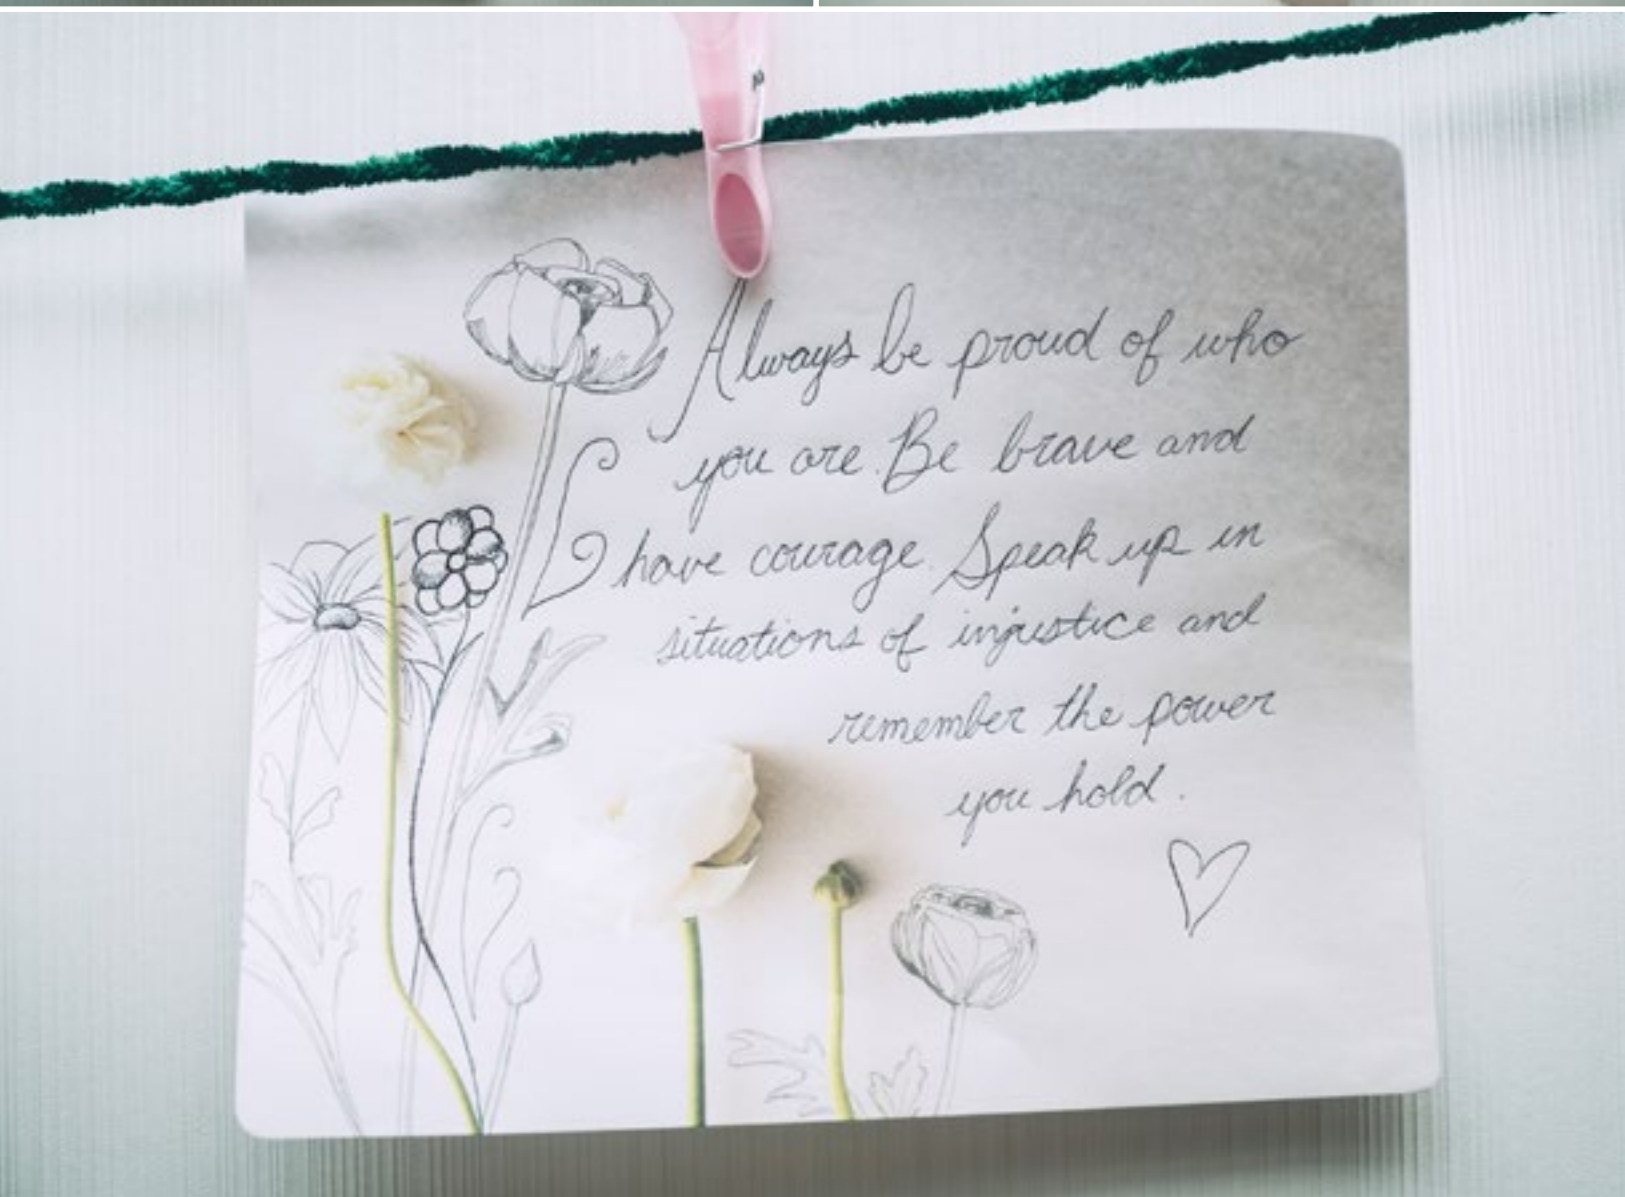 Always be proud of who
you are. Be brave and
have courage. Speak up in
situations of injustice and
remember the power
you hold.